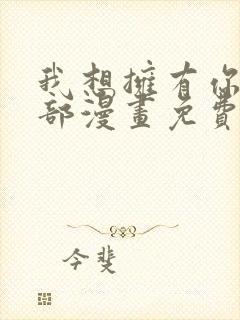 我想擁有你
部漫畫免費
今斐